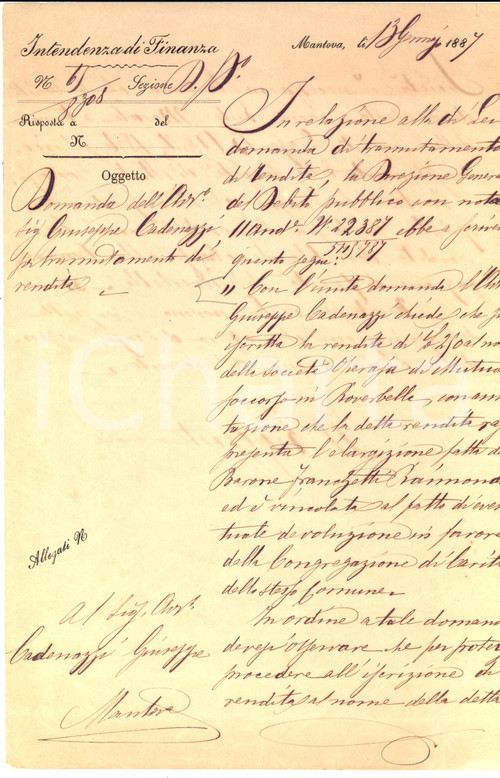 Intendenza di Finanza
Mantova, li 13 Genajo 1887
N 61 Sezione D. P.o
8308
Risposta a del
N.
Oggetto
Domanda dell'Avv.o
Sig Giuseppe Cadenazzi
per tramutamento di
rendita
In relazione alla di Lei
domanda di tramutamento
di rendita, la Direzione Genera
del Debito pubblico con nota
11 And.e N.o 22387
ebbe a
quanto segue:
" Con l'unita domanda l'
Giuseppe Cadenazzi chiede che
iscritta la rendita di al no
della Società Operaja di Mutuo
soccorso in Roverbella, con anno
tazione che la detta rendita rap
presenta l'elargizione fatta da
Barone Franchetti Raimondo
ed è vincolata al patto di even
tuale devoluzione in favore
della Congregazione di Carit
dello stesso Comune.
In ordine a tale doman
devesi osservare che per poter
procedere all'iscrizione di
rendita al nome della detta
Allegati N
Al Sig. Avv.o
Cadenazzi Giuseppe
Mantova